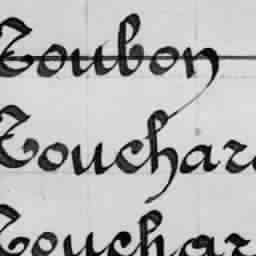 Toubon
Touchar
Touchar